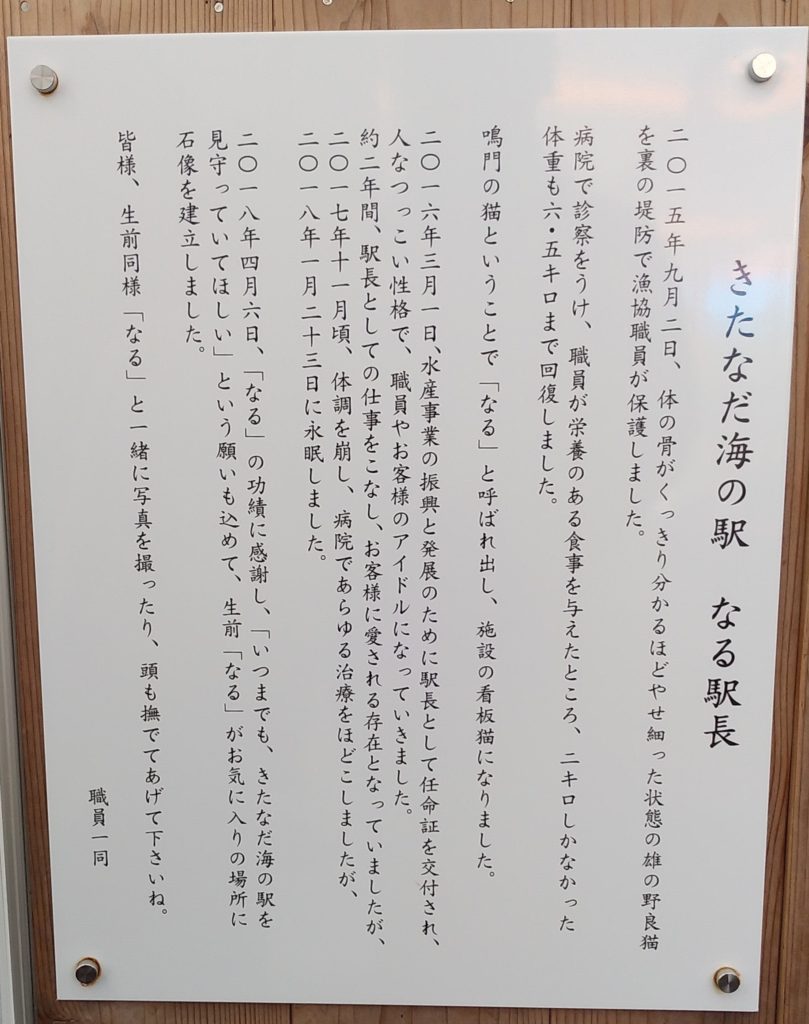 きたなだ海の駅　なる駅長
二〇一五年九月二日、体の骨がくっきり分かるほどやせ細った状態の雄の野良猫
を裏の堤防で漁協職員が保護しました。
病院で診察をうけ、職員が栄養のある食事を与えたところ、二キロしかなかった
体重も六・五キロまで回復しました。
鳴門の猫ということで「なる」と呼ばれ出し、施設の看板猫になりました。
二〇一六年三月一日、水産事業の振興と発展のために駅長として任命証を交付され、
人なつっこい性格で、職員やお客様のアイドルになっていきました。
約二年間、駅長としての仕事をこなし、お客様に愛される存在となっていましたが、
二〇一七年十一月頃、体調を崩し、病院であらゆる治療をほどこしましたが、
二〇一八年一月二十三日に永眠しました。
二〇一八年四月六日、「なる」の功績に感謝し、「いつまでも、きたなだ海の駅を
見守っていてほしい」という願いも込めて、生前「なる」がお気に入りの場所に
石像を建立しました。
皆様、生前同様「なる」と一緒に写真を撮ったり、頭も撫でてあげて下さいね。
職員一同